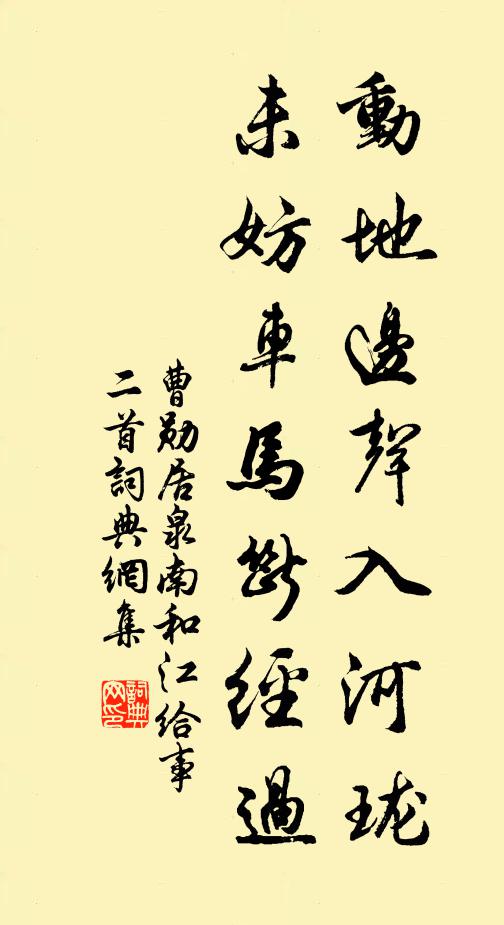 動地邊聲入河珑
未妨車馬斷經過
曹勛居泉南和江給事
二首詞典網集
詞典网印